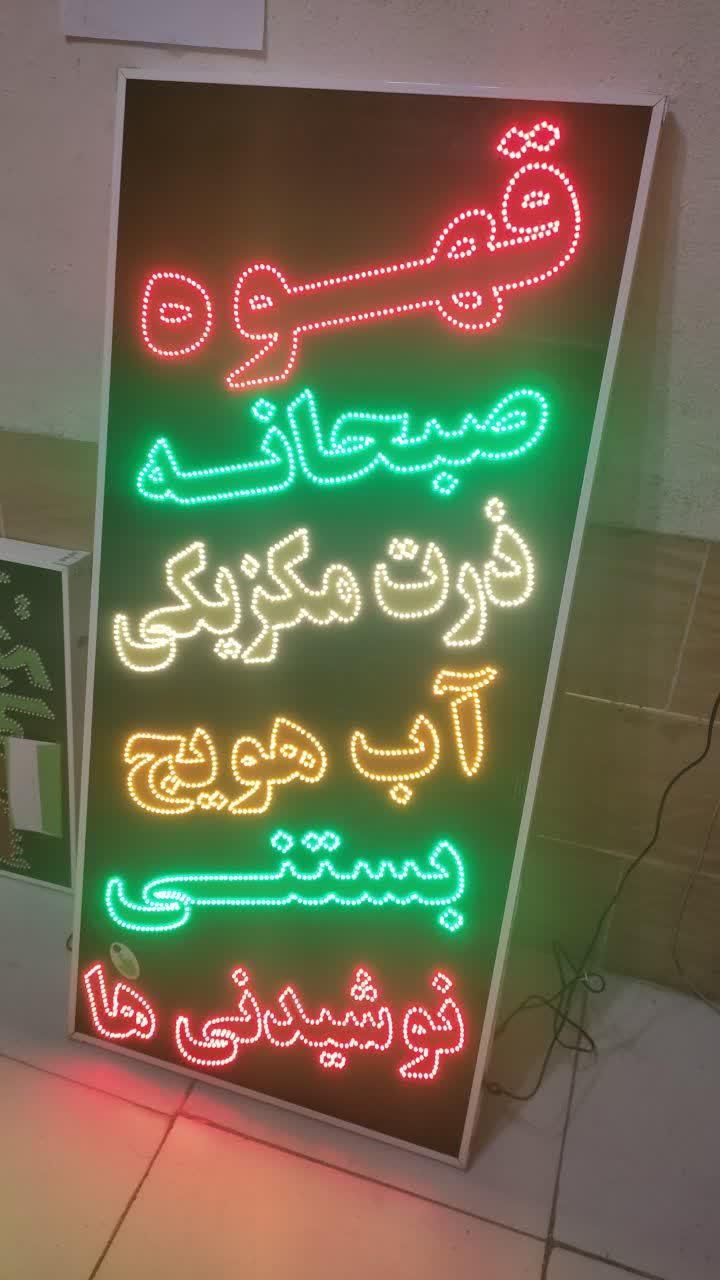 قهوه
صبحانه
ذرت مکزیکی
آب هویج
بستنی
نوشیدنی ها